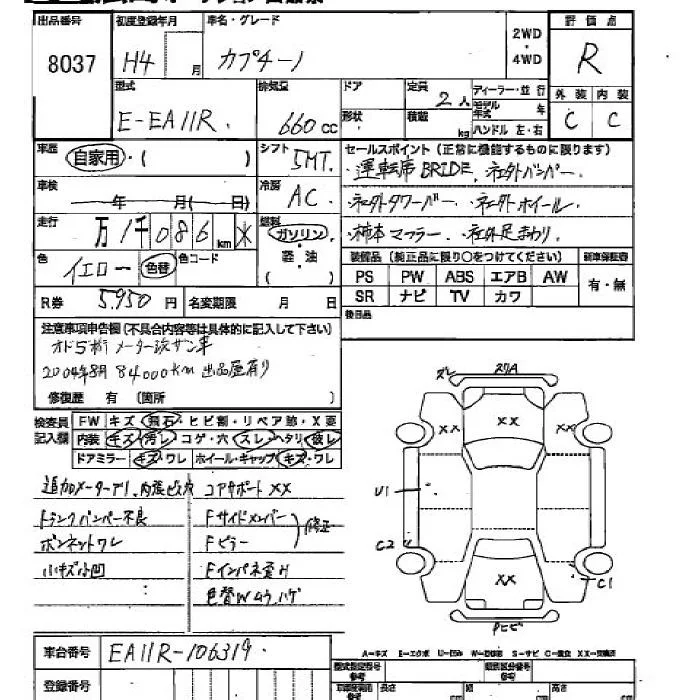 出品番号 初度登録年月 車名・グレード 評価点
8037 H4 月 カプチーノ 2WD・4WD R
型式 排気量 ドア 定員 ディーラー・並行 外装 内装
E-EA11R. 660cc 形状 2人 積載 kg モデル年式 年 ハンドル 左・右 C C
車歴 自家用・( ) シフト 5MT. セールスポイント (正常に機能するものに限ります)
・運転席BRIDE, 社外バンパー.
車検 年 月( 日) 冷房 AC ・社外タワーバー. ・社外ホイール
走行 万1千086km 燃料 ガソリン・軽・油( ) ・柿本マフラー. ・社外足まわり
色 イエロー 色替 色コード 装備品 (純正品に限り○をつけてください) 新車保証書
PS PW ABS エアB AW 有・無
SR ナビ TV カワ
R券 5,950円 名変期限 月 日 後日品
注意事項申告欄(不具合内容等は具体的に記入して下さい)
オド5桁メーター改ザン車
2004年8月 84000km 出品歴有り
修復歴 有 (箇所 )
検査員記入欄 FW キズ・飛石・ヒビ割・リペア跡・X要
内装 キズ・汚レ・コゲ・穴・スレ・ヘタリ・破レ
ドアミラー キズ・ワレ ホイール・キャップ キズ・ワレ
追加メーターアリ、内張ビス穴
トランクバンパー不良
ボンネットワレ
小キズ小凹
コアサポートXX
Fサイドメンバー
Fピラー
修正
Fインパネ歪み
色替Wムラ、ハゲ
ズレ スリA
XX
XX XX
U1
C2
XX
C1
PヒビA
A=キズ E=エクボ U=凹み W=凹修跡 S=サビ C=腐食 XX=交換済
車台番号 EA11R-106319.
登録番号
型式指定番号 類別区分番号
長さ cm 幅 cm 高さ cm